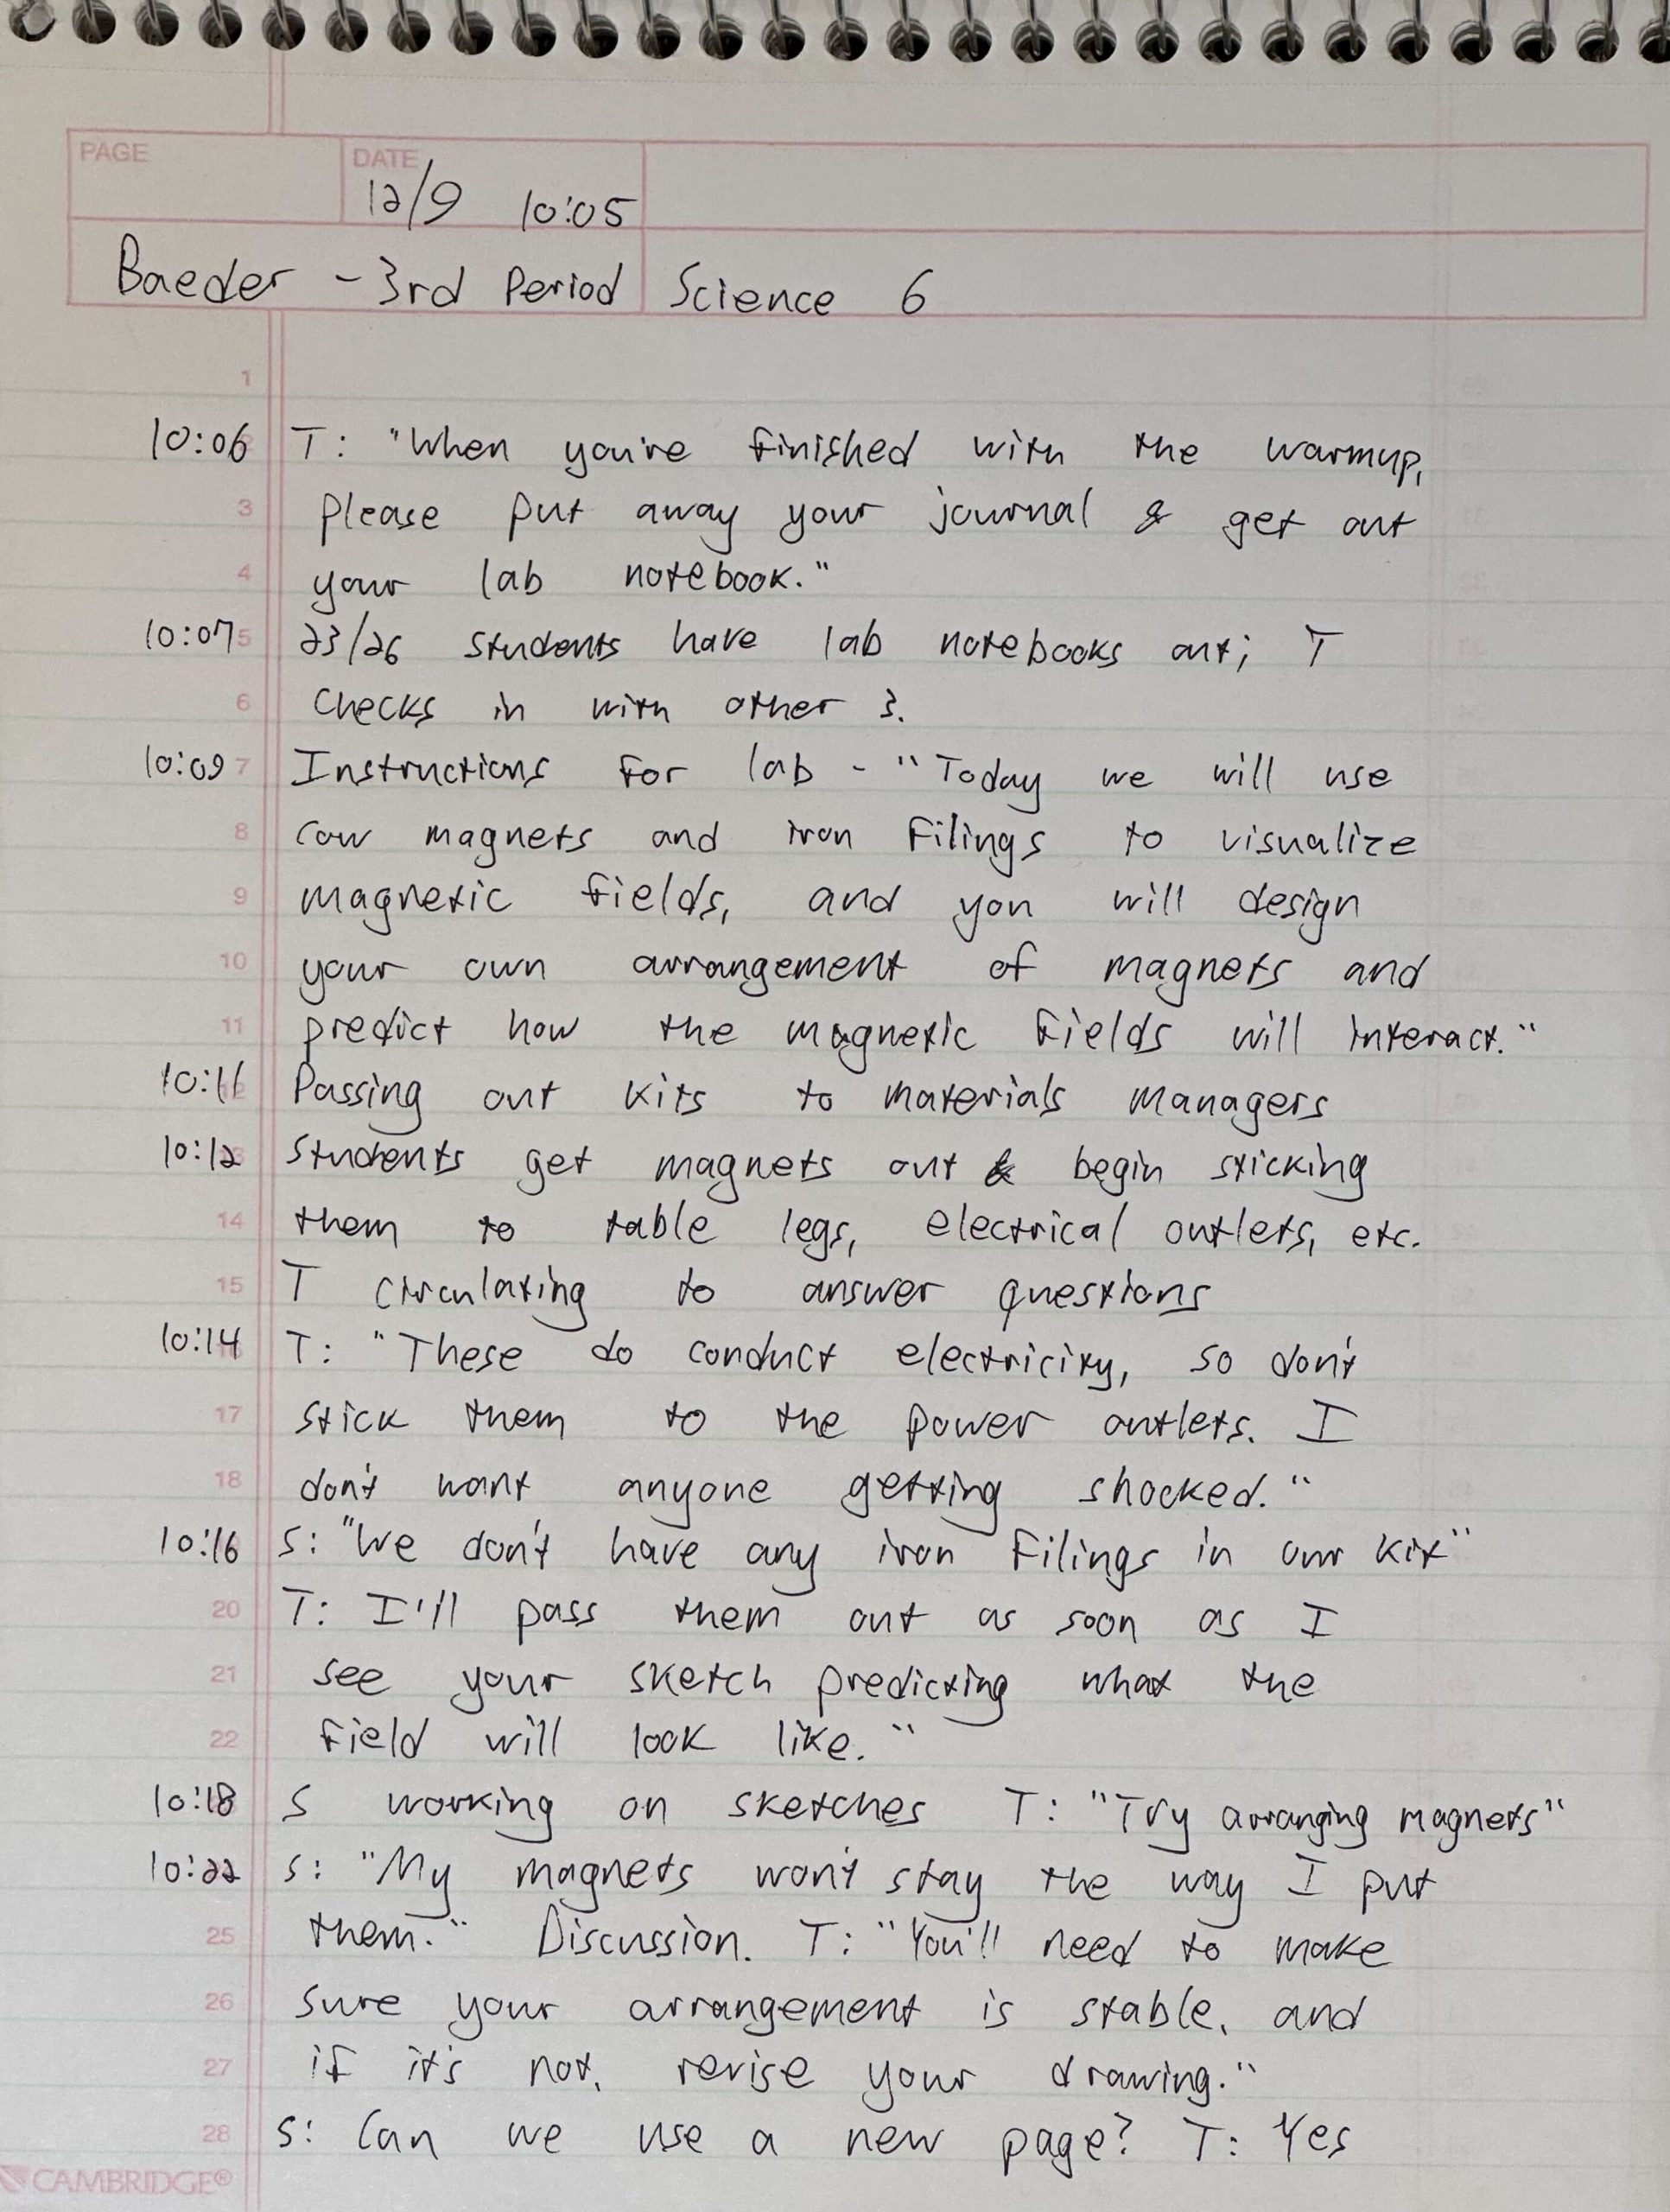 PAGE DATE
12/9 10:05
Baeder - 3rd Period Science 6
1
10:06 T: "When you're finished with the warmup,
3 please put away your journal & get out
4 your lab notebook."
10:07 5 23/26 students have lab notebooks out; T
6 checks in with other 3.
10:09 7 Instructions for lab - "Today we will use
8 cow magnets and iron filings to visualize
9 magnetic fields, and you will design
10 your own arrangement of magnets and
11 predict how the magnetic fields will interact."
10:11 12 Passing out kits to materials managers
10:12 Students get magnets out & begin sticking
14 them to table legs, electrical outlets, etc.
15 T circulating to answer questions
10:14 T: "These do conduct electricity, so don't
17 stick them to the power outlets. I
18 don't want anyone getting shocked."
10:16 S: "We don't have any iron filings in our kit"
20 T: I'll pass them out as soon as I
21 see your sketch predicting what the
22 field will look like."
10:18 S working on sketches T: "Try arranging magnets"
10:22 S: "My magnets won't stay the way I put
25 them." Discussion. T: "You'll need to make
26 sure your arrangement is stable, and
27 if it's not, revise your drawing."
28 S: Can we use a new page? T: Yes
CAMBRIDGE®